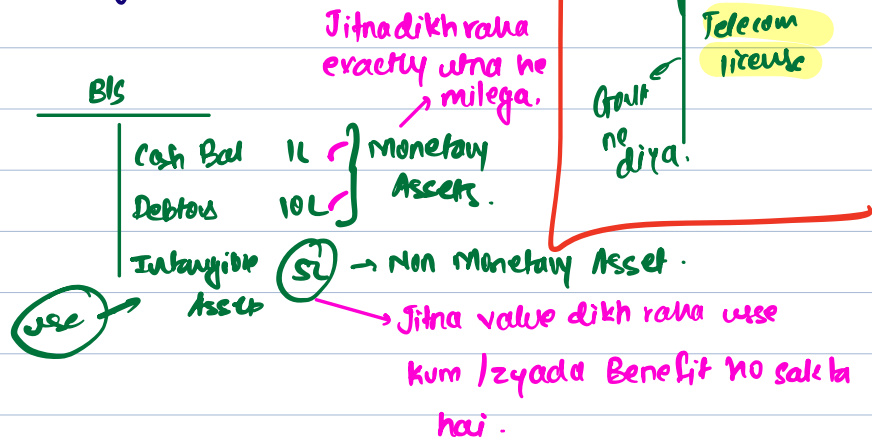 Jitna dikh raha
exactly utna he
milega.
Telecom
license
Govt
ne
diya.
B/S
Cash Bal 1L
Debtors 10L
Monetary
Assets.
Intangible
Assets
5L → Non Monetary Asset.
use
Jitna value dikh raha usse
kum / zyada Benefit ho sakta
hai.